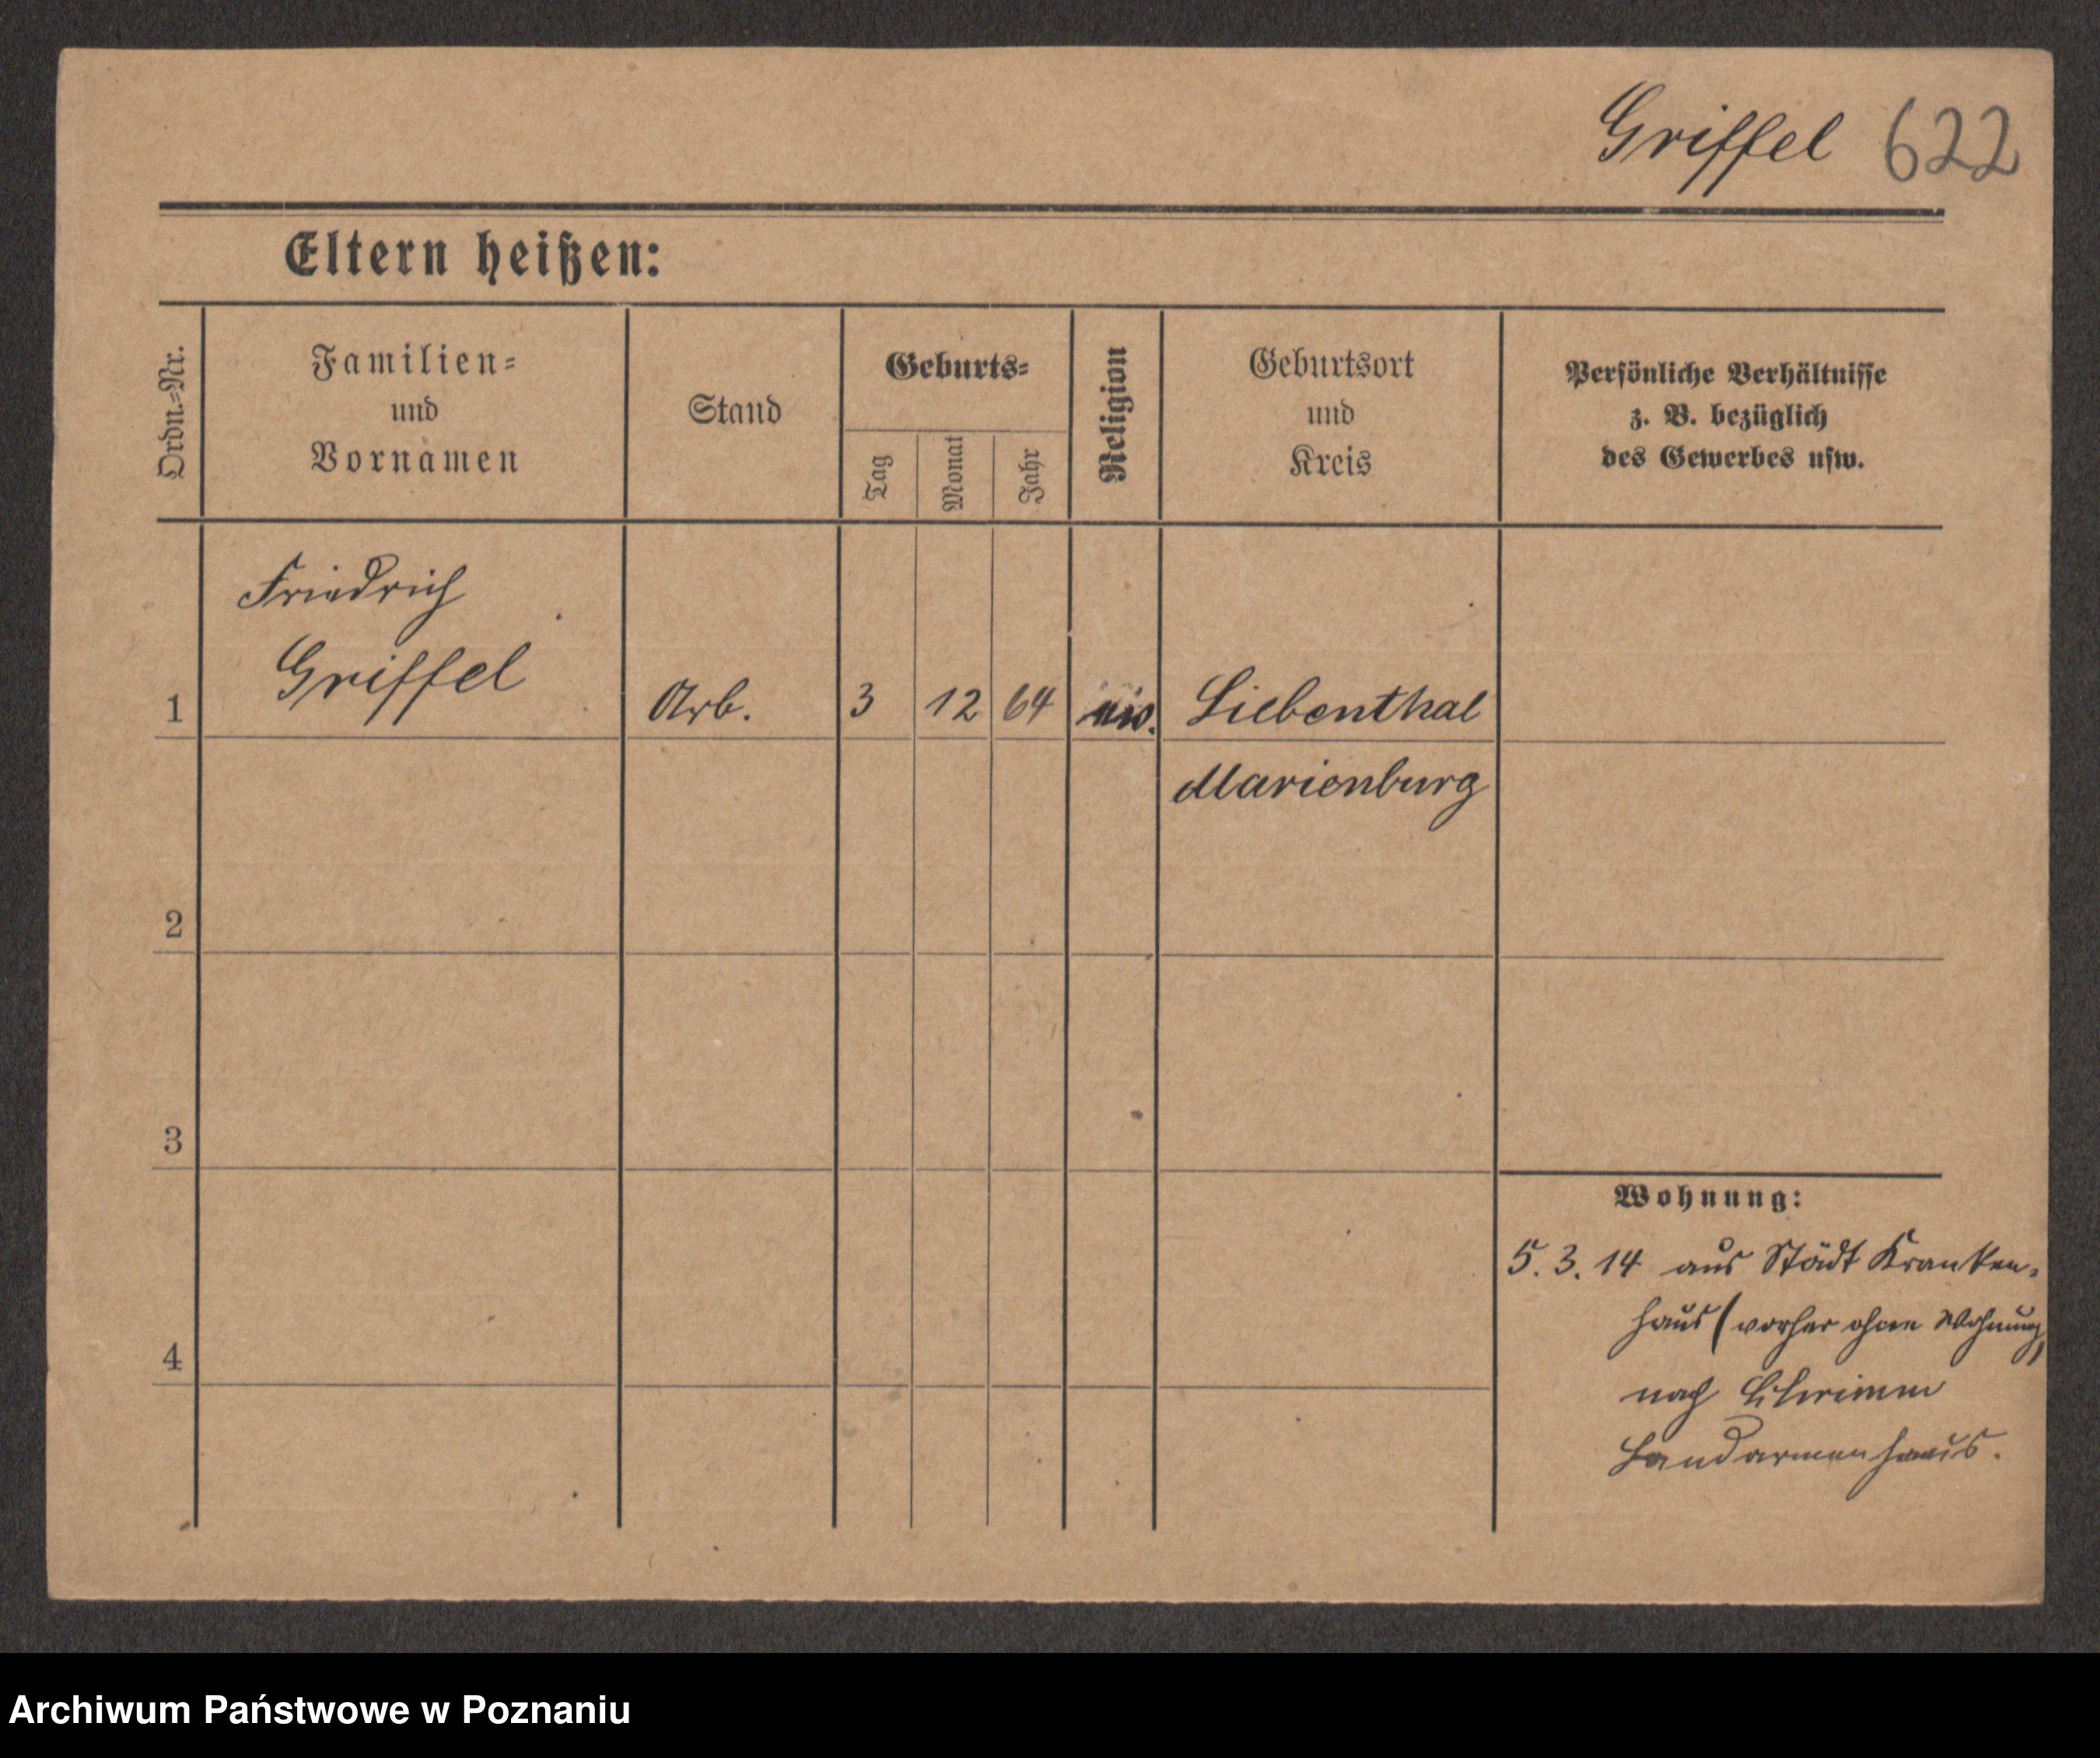 Griffel 622
Eltern heißen:
Ordn.=Nr.
Familien=
und
Vornamen
Stand
Geburts=
Tag
Monat
Jahr
Religion
Geburtsort
und
Kreis
Persönliche Verhältnisse
z. B. bezüglich
des Gewerbes usw.
Friedrich
Griffel
1
Arb.
3
12
64
Liebenthal
Marienburg
2
3
4
Wohnung:
5. 3. 14 aus Städt Kranken-
haus (vorher ohne Wohnung)
nach Schrimm
Landarmenhaus.
Archiwum Państwowe w Poznaniu